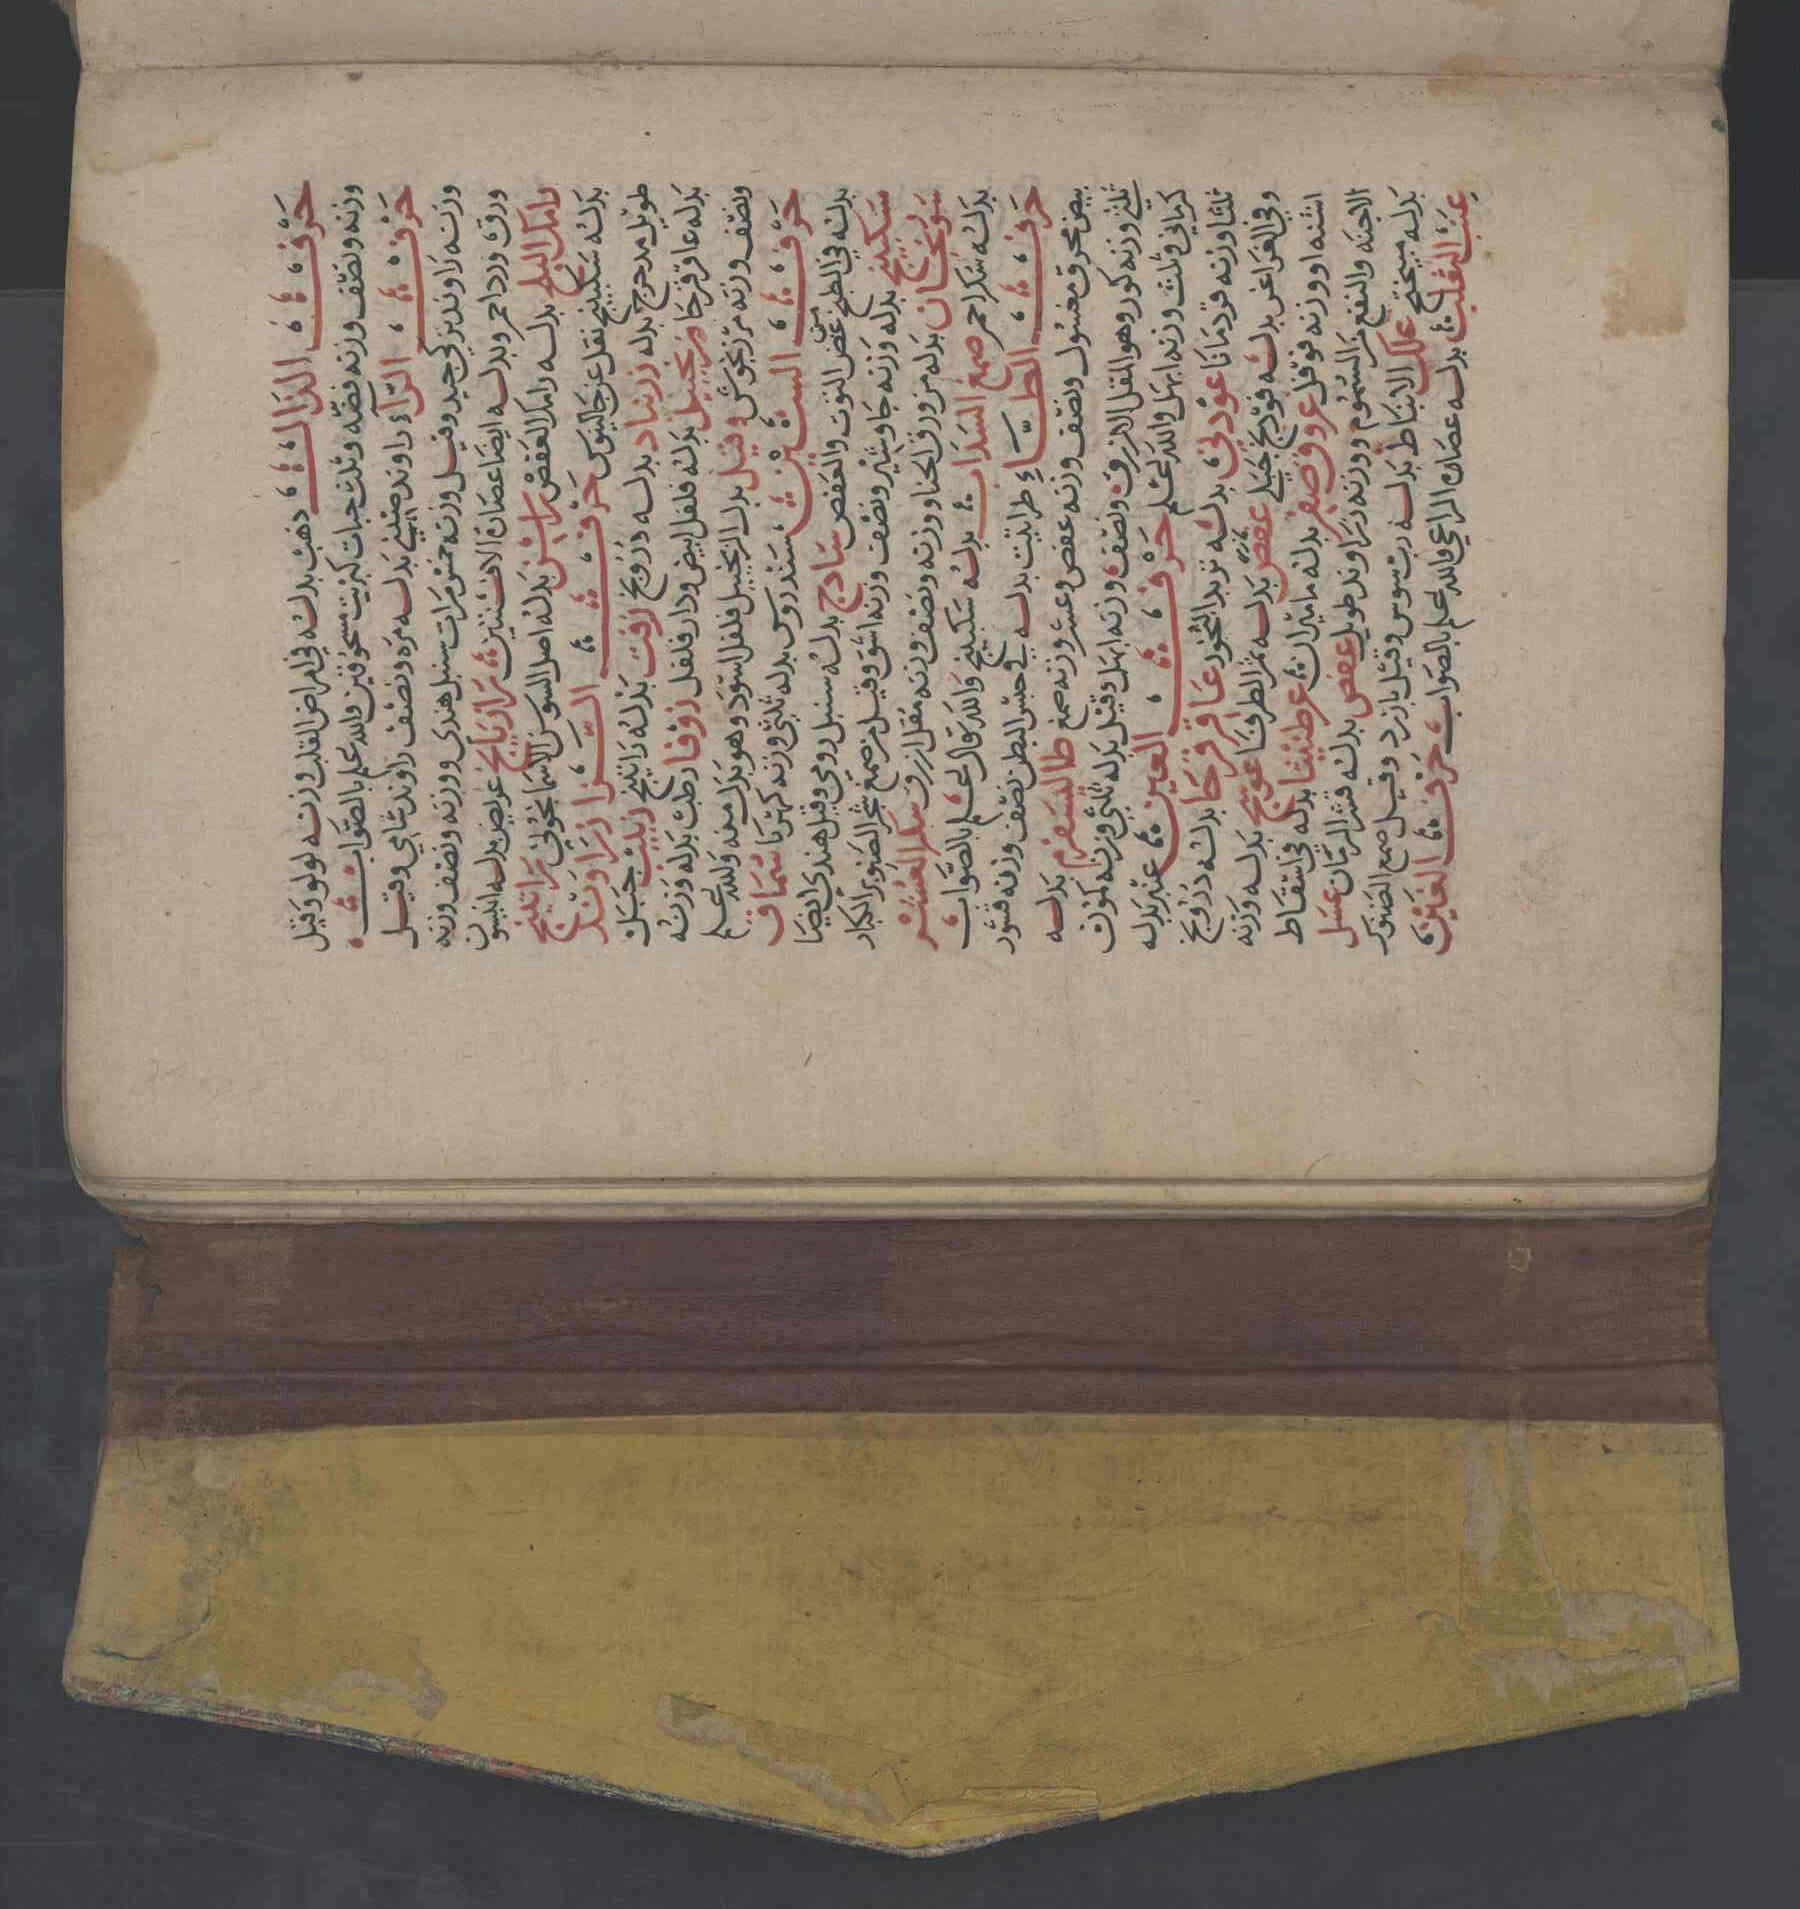 حرف الذال ذهب بدله في امراض القلب وزنه لولو وقيل
وزنه ونصف وزنه فضه وثلث حبات كبريت مسحوقين والله اعلم بالصواب
حرف الرآء راوند صيني بدله مره ونصف راوند شامي وقيل
وزنه راوند تركي جيد وقيل وزنه خمس مرات سنبل هندي ووزنه ونصف وزنه
ورق ورد احمر وبدله ايضا عصارة الافسنتين رازيانج عريض بدله انيسون
رامك البلح بدله رامك العفص راسن بدله اصل السوسن الاسمانجوني راتينج
بدله سكبينج نقل عن جالينوس حرف الزا زراوند
طويل مدحرج بدله زرنباد بدله درونج زفت بدله راتينج زبيب جبل
بدله عاقرقرحا زنجبيل بدله فلفل ابيض ودار فلفل زوفا رطب بدله وزنه
ونصف وزنه مرزنجوش وقيل بدل الزنجبيل فلفل اسود وهو بدل منه والله اعلم
حرف السين سندروس بدله ثلثي وزنه كهربا سماق
بدله في الطبخ غض التوت والعفص سادج بدله سنبل رومي وقيل هندي ايضا
سكبينج بدله وزنه جاوشير ونصف وزنه اشق وقيل من صمغ شجر الصنوبر الكبار
سورنجان بدله من ورق الحنا ووزنه ونصف وزنه مقل ازرق سكر العشر
بدله سكر احمر صمغ السداب بدله سكبينج والله تعالى اعلم بالصواب
حرف الطاء طراثيث بدله في حبس البطن نصف وزنه قشور
بيض محرق مغسول ونصف وزنه عفص وعشر وزنه صمغ طاليسفرم بدله
ثلثي وزنه كور وهو المقل الازرق ونصف وزنه ابهل وقيل بدله ثلثي وزنه كمون
كرماني وثلث وزنه ابهل والله اعلم حرف العين عنبر بدله
ثلثا وزنه قردمانا عود ني بدله تربد النخود عاقرقرحا بدله درونج
وفي الغراغر بدله فودنج جبلي عفص بدله ثمر الطرفا عوسج بدله وزنه
اشنه او وزنه فوفل عروق صفر بدله ماميران عرطنيثا بدله في اسقاط
الاجنه والنفع من السموم ووزنه زراوند طويل عفص بدله قشر الرمان عسل
بدله ميبختج علك الانباط بدله رب سوس وقيل بازرد وقيل صمغ الصنوبر
عنب الثعلب بدله عصاه الراعي والله اعلم بالصواب حرف الغين